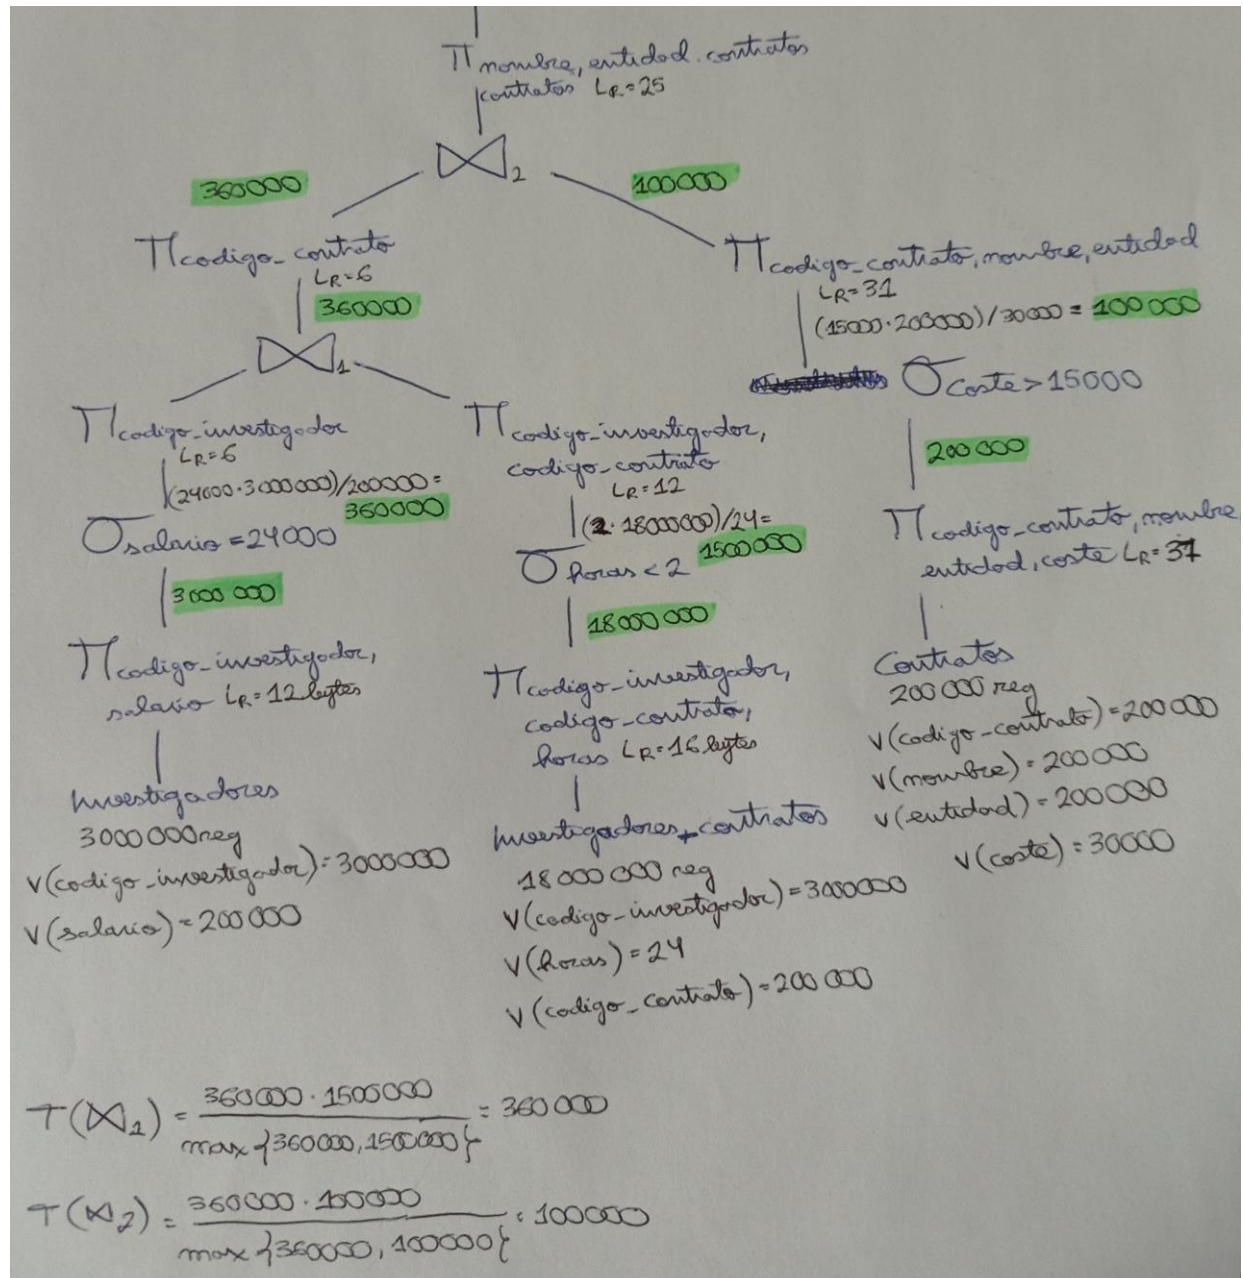 π nombre, entidad.contratos
contratos LR=25
⋈2
360000
100000
π codigo_contrato
LR=6
360000
π codigo_contrato, nombre, entidad
LR=31
(15000·200000)/30000 = 100000
⋈1
σ coste>15000
π codigo_investigador
LR=6
(24000·3000000)/200000=
360000
σ salario=24000
3000000
π codigo_investigador,
salario LR=12 bytes
Investigadores
3000000 reg
V(codigo_investigador)=3000000
V(salario)=200000
π codigo_investigador,
codigo_contrato
LR=12
(2·18000000)/24=
1500000
σ horas<2
18000000
π codigo_investigador,
codigo_contrato,
horas LR=16 bytes
Investigadores_contratos
18000000 reg
V(codigo_investigador)=3000000
V(horas)=24
V(codigo_contrato)=200000
200000
π codigo_contrato, nombre,
entidad, coste LR=37
Contratos
200000 reg
V(codigo_contrato)=200000
V(nombre)=200000
V(entidad)=200000
V(coste)=30000
T(⋈1) = 360000·1500000 / max{360000,1500000} = 360000
T(⋈2) = 360000·100000 / max{360000,100000} = 100000